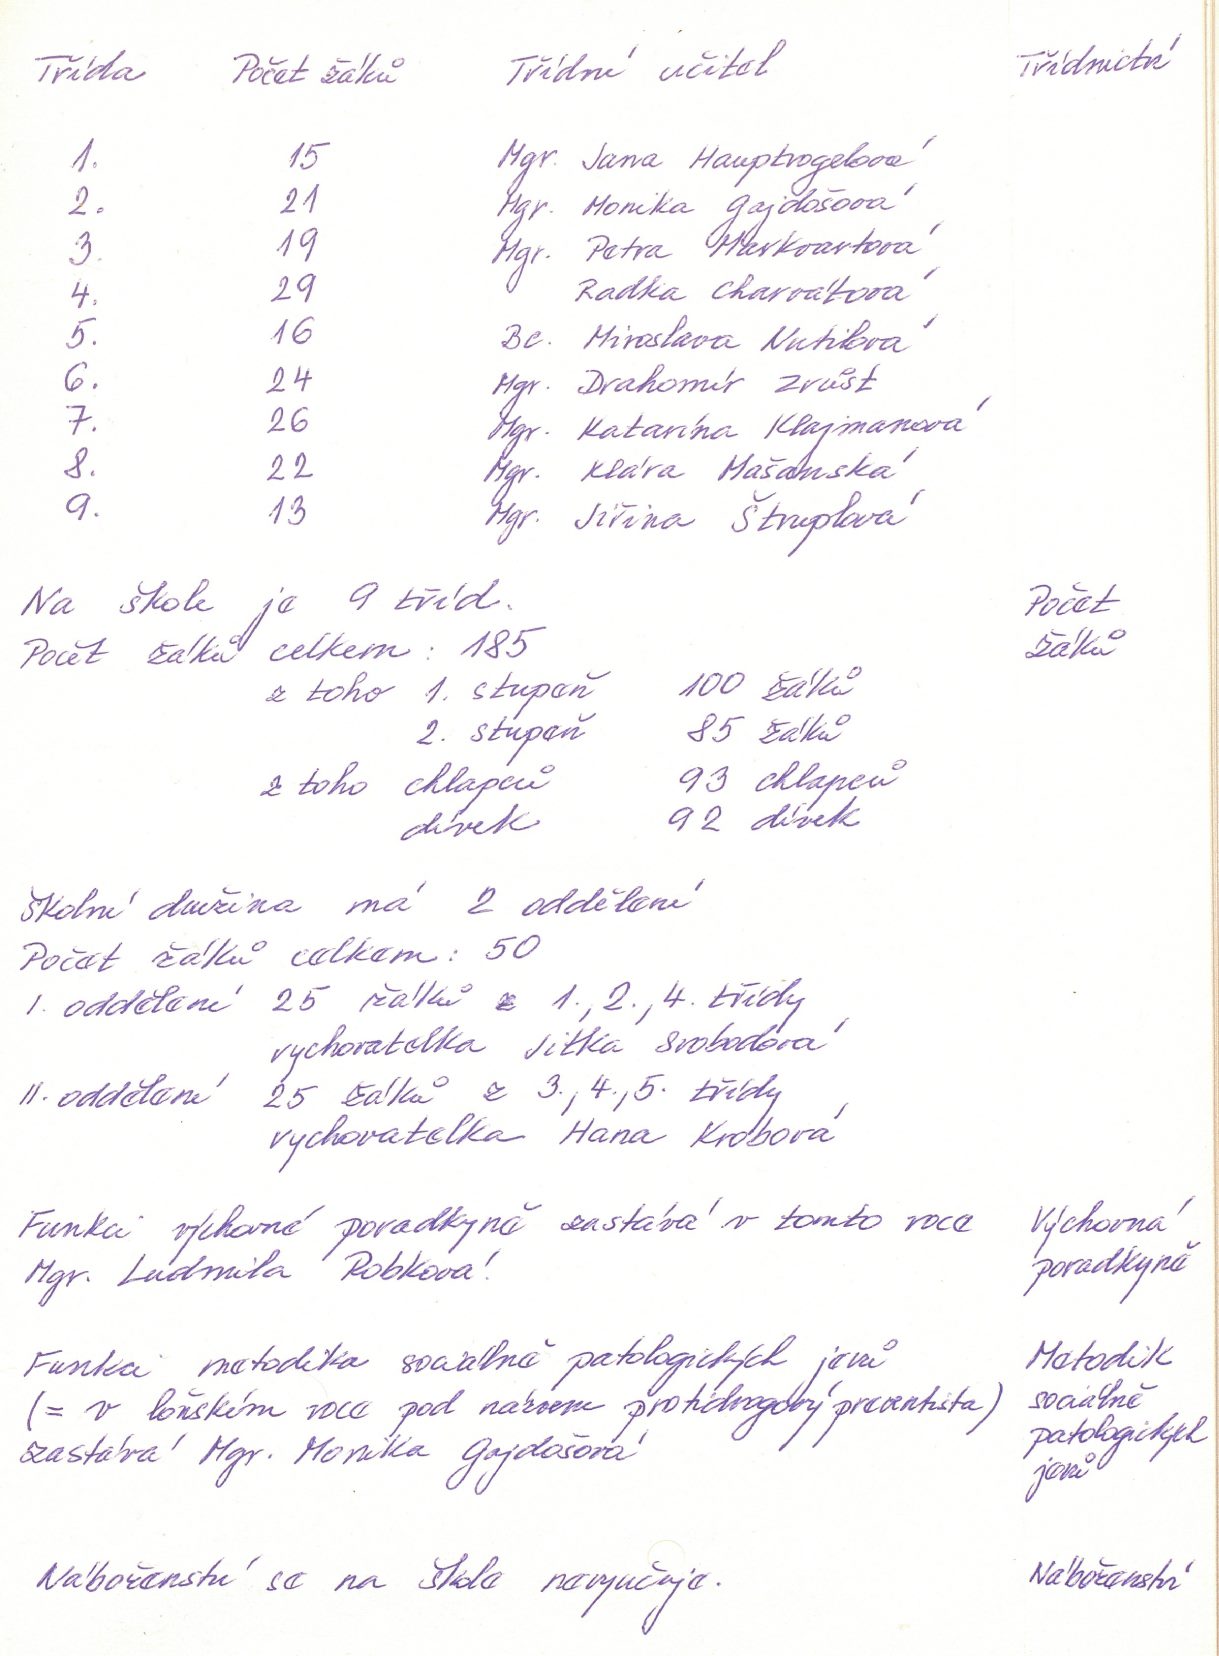 Třída Počet žáků Třídní učitel Třídnictví
1. 15 Mgr. Jana Hauptvogelová
2. 21 Mgr. Monika Gajdošová
3. 19 Mgr. Petra Markvartová
4. 29 Radka Charvátová
5. 16 Bc. Miroslava Nutilová
6. 24 Mgr. Drahomír Zrůst
7. 26 Mgr. Katarína Klajmanová
8. 22 Mgr. Klára Mašanská
9. 13 Mgr. Jiřina Štruplová
Na škole je 9 tříd. Počet
Počet žáků celkem : 185 žáků
z toho 1. stupeň 100 žáků
2. stupeň 85 žáků
z toho chlapců 93 chlapců
dívek 92 dívek
Školní družina má 2 oddělení
Počet žáků celkem : 50
I. oddělení 25 žáků z 1., 2., 4. třídy
vychovatelka Jitka Svobodová
II. oddělení 25 žáků z 3., 4., 5. třídy
vychovatelka Hana Krobová
Funkci výchovné poradkyně zastává v tomto roce Výchovná
Mgr. Ludmila Robková. poradkyně
Funkci metodika sociálně patologických jevů Metodik
(= v loňském roce pod názvem protidrogový preventista) sociálně
zastává Mgr. Monika Gajdošová patologických
jevů
Náboženství se na škole nevyučuje. Náboženství